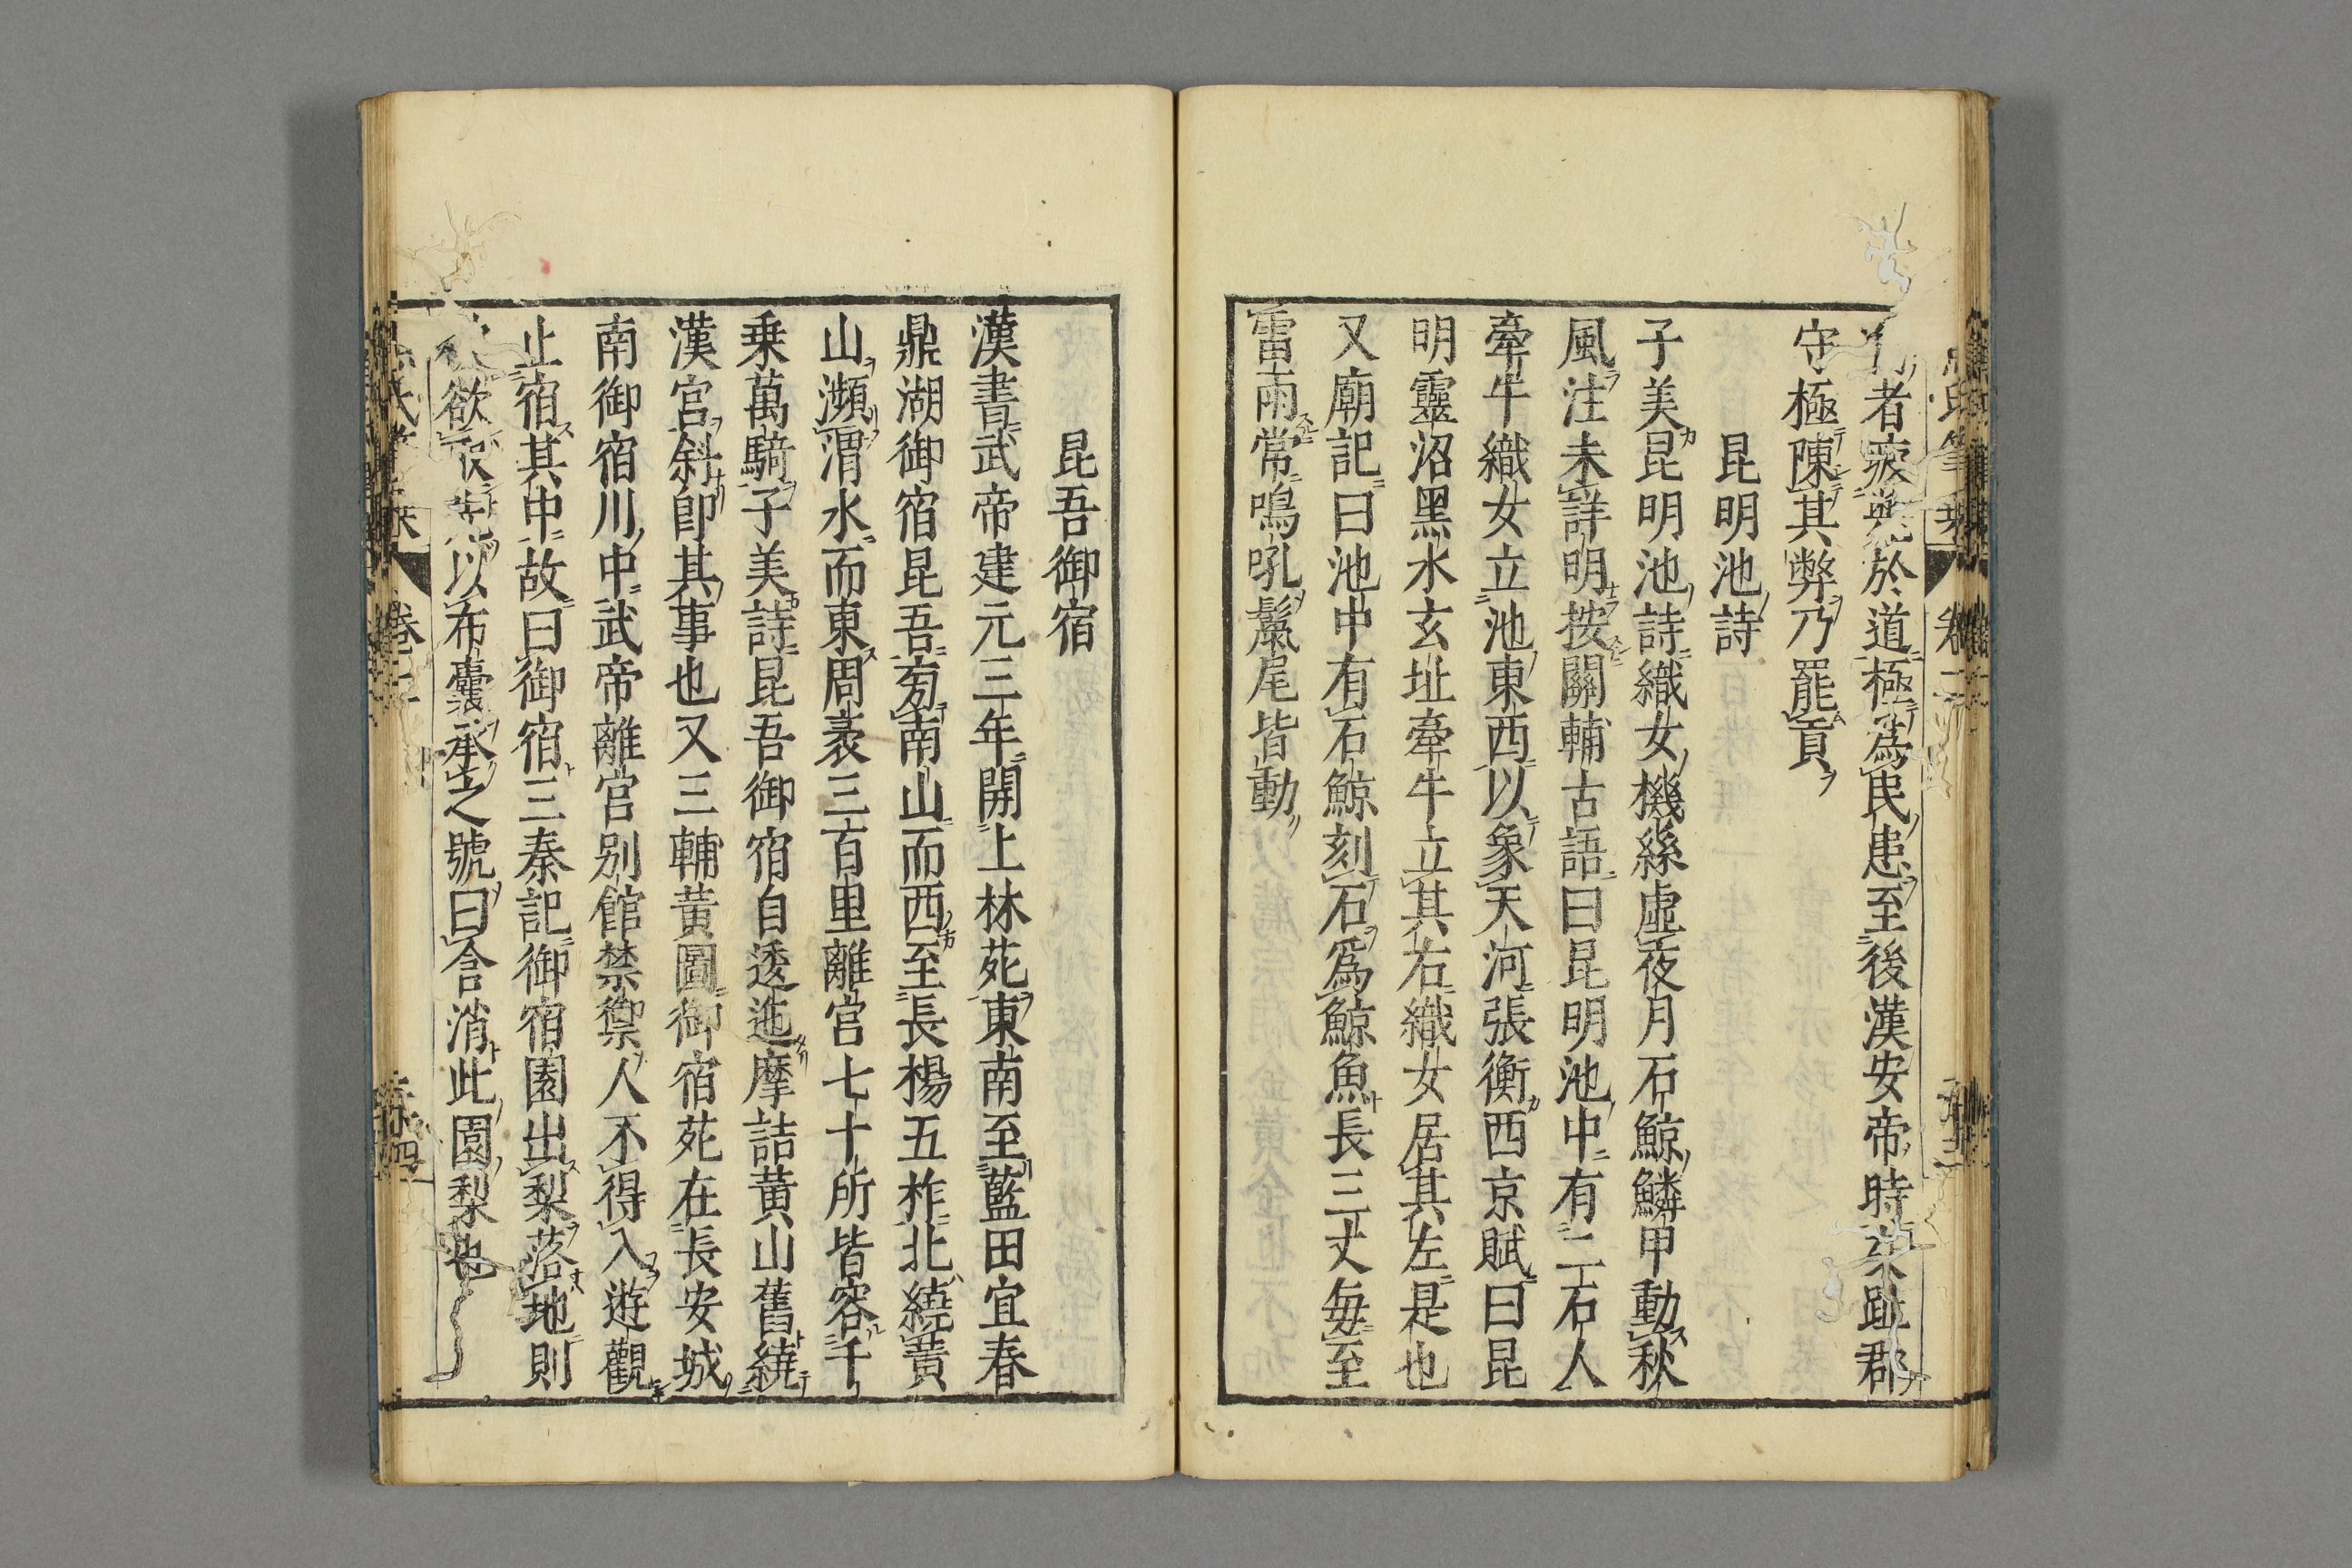 者疲斃於道極爲民患至後漢安帝時臨趾郡
守極陳其弊乃罷貢
昆明池詩
子美昆明池詩織女機絲虛夜月石鯨鱗甲動秋
風注未詳明按關輔古語曰昆明池中有二石人
牽牛織女立池東西以象天河張衡西京賦曰昆
明靈沼黑水玄址牽牛立其右織女居其左是也
又廟記曰池中有石鯨刻石爲鯨魚長三丈每至
雷雨常鳴吼鬣尾皆動
昆吾御宿
漢書武帝建元三年開上林苑東南至藍田宜春
鼎湖御宿昆吾旁南山而西至長楊五柞北繞黃
山瀕渭水而東周袤三百里離宮七十所皆容千
乗萬騎子美詩昆吾御宿自逶迤摩詰黃山舊繞
漢宮斜卽其事也又三輔黃圖御宿苑在長安城
南御宿川中武帝離宮别館禁禦人不得入遊觀
止宿其中故曰御宿三秦記御宿園出梨落地則
欲取先以布囊承之號曰含消此園梨也